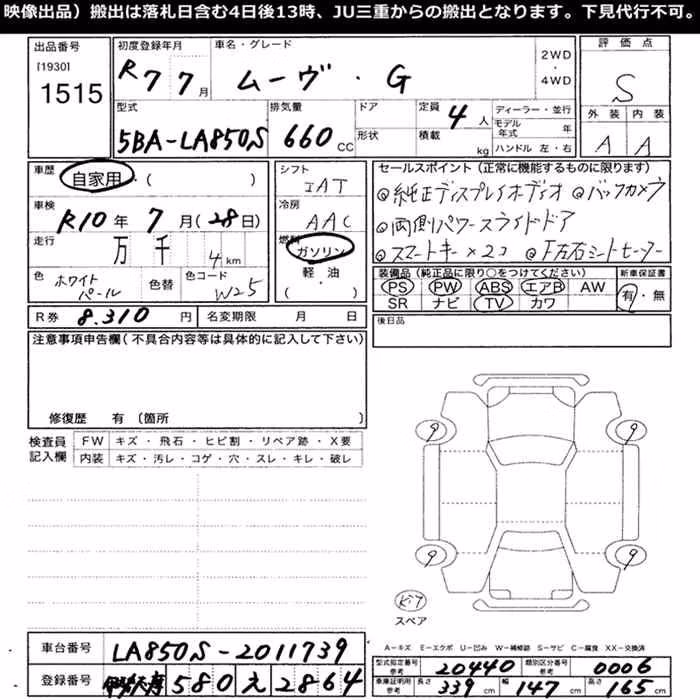 映像出品）搬出は落札日含む4日後13時、JU三重からの搬出となります。下見代行不可。
出品番号 初度登録年月 車名・グレード 2WD・4WD 評価点
[1930] 1515 R7 7月 ムーヴ・G S
型式 排気量 ドア 定員 4人 ディーラー・並行 外装 内装
5BA-LA850S 660CC 形状 積載 kg モデル年式 年 ハンドル 左・右 A A
車歴 自家用・( ) シフト IAT セールスポイント（正常に機能するものに限ります）
車検 R10年 7月(28日) 冷房 AAC ◎純正ディスプレイオーディオ ◎バックカメラ
◎両側パワースライドドア
走行 万 千 4km 燃料 ガソリン ◎スマートキー×2コ
軽・油
( )
色 ホワイトパール 色替 色コード W25
装備品（純正品に限り○をつけてください） 新車保証書
PS PW ABS エアB AW 有・無
SR ナビ TV カワ
R券 8.310円 名変期限 月 日 後日品
注意事項申告欄（不具合内容等は具体的に記入して下さい）
修復歴 有（箇所
検査員記入欄 FW キズ・飛石・ヒビ割・リペア跡・X要
内装 キズ・汚レ・コゲ・穴・スレ・キレ・破レ
9 9
9 9
スペア
A－キズ E－エクボ U－凹み W－補修跡 S－サビ C－腐食 XX－交換済
車台番号 LA850S-2011739
登録番号 580 え 2864
型式指定番号 参考 20440 類別区分番号 参考 0006
車庫証明用 参考 長さ 339cm 幅 147cm 高さ 165cm